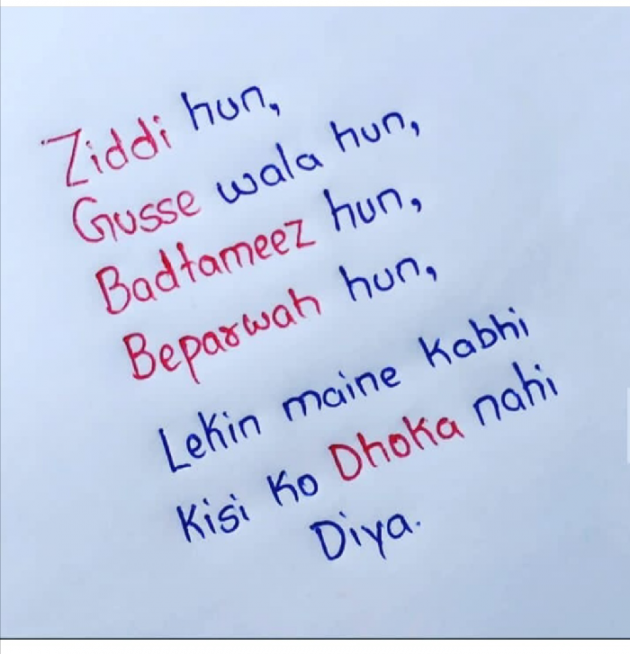 Ziddi hun,
Gusse wala hun,
Badtameez hun,
Beparwah hun,
Lekin maine kabhi
kisi ko Dhoka nahi
Diya.